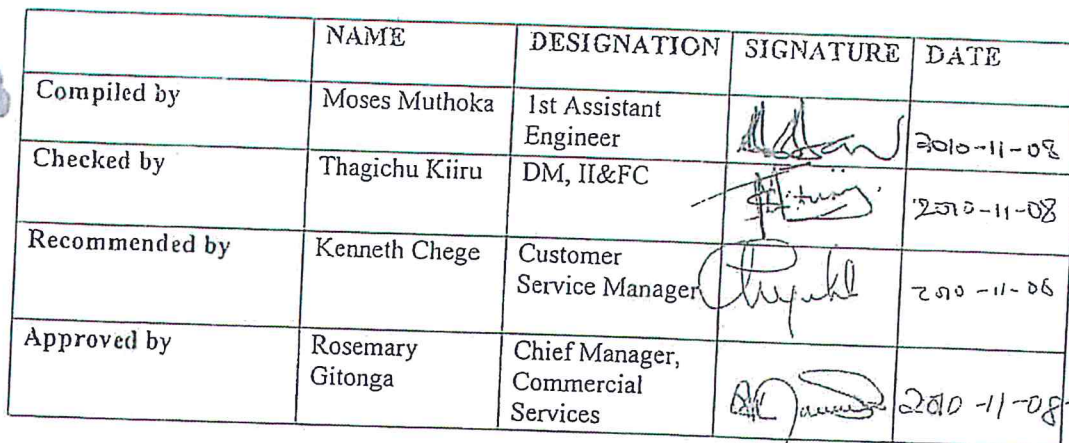 NAME DESIGNATION SIGNATURE DATE
Compiled by Moses Muthoka 1st Assistant Engineer 2010-11-08
Checked by Thagichu Kiiru DM, II&FC 2010-11-08
Recommended by Kenneth Chege Customer Service Manager 2010-11-08
Approved by Rosemary Gitonga Chief Manager, Commercial Services 2010-11-08